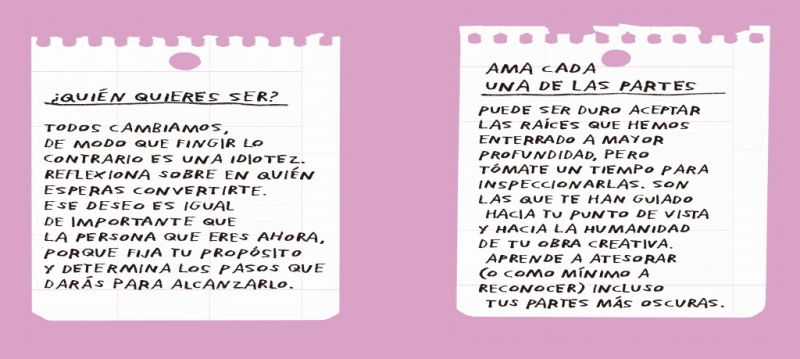 ¿QUIÉN QUIERES SER?
TODOS CAMBIAMOS,
DE MODO QUE FINGIR LO
CONTRARIO ES UNA IDIOTEZ.
REFLEXIONA SOBRE EN QUIÉN
ESPERAS CONVERTIRTE.
ESE DESEO ES IGUAL
DE IMPORTANTE QUE
LA PERSONA QUE ERES AHORA,
PORQUE FIJA TU PROPÓSITO
Y DETERMINA LOS PASOS QUE
DARÁS PARA ALCANZARLO.
AMA CADA
UNA DE LAS PARTES
PUEDE SER DURO ACEPTAR
LAS RAÍCES QUE HEMOS
ENTERRADO A MAYOR
PROFUNDIDAD, PERO
TÓMATE UN TIEMPO PARA
INSPECCIONARLAS. SON
LAS QUE TE HAN GUIADO
HACIA TU PUNTO DE VISTA
Y HACIA LA HUMANIDAD
DE TU OBRA CREATIVA.
APRENDE A ATESORAR
(O COMO MÍNIMO A
RECONOCER) INCLUSO
TUS PARTES MÁS OSCURAS.